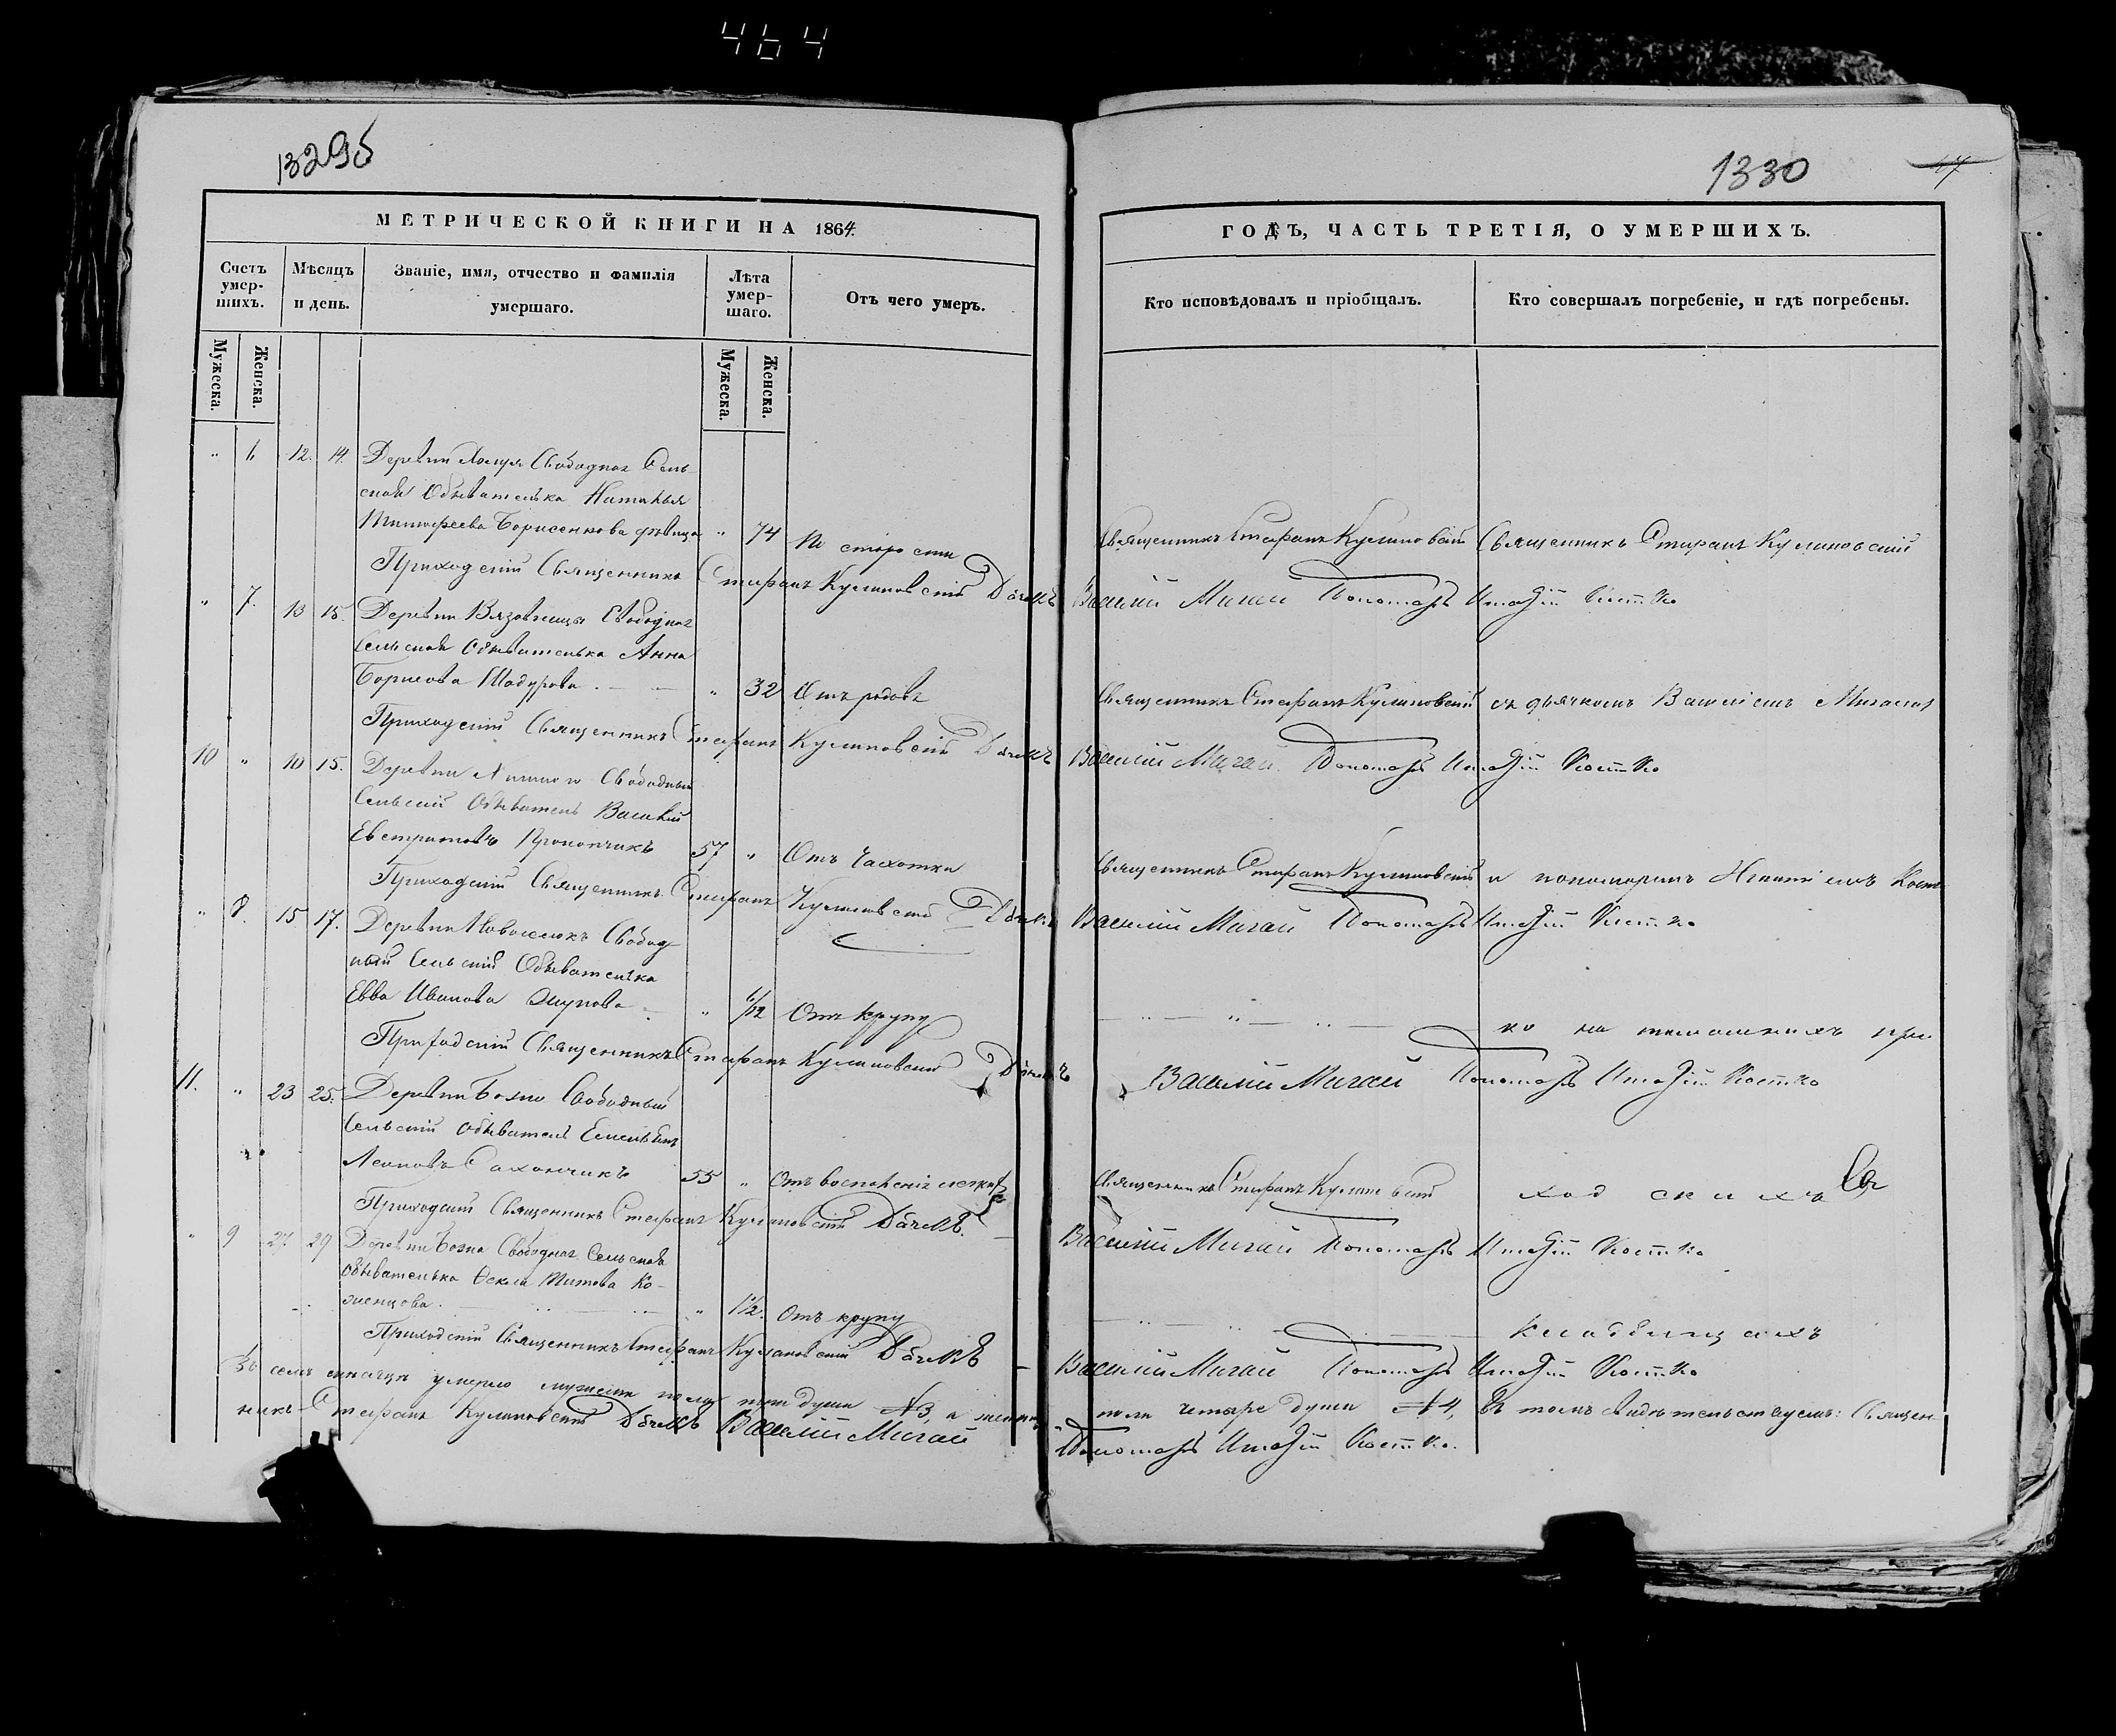 464
1329б
1330
47
МЕТРИЧЕСКОЙ КНИГИ НА 1864.
ГОДЪ, ЧАСТЬ ТРЕТІЯ, О УМЕРШИХЪ.
Счетъ умер-шихъ.
Мѣсяцъ и день.
Званіе, имя, отчество и фамилія умершаго.
Лѣта умер-шаго.
Отъ чего умеръ.
Кто исповѣдовалъ и пріобщалъ.
Кто совершалъ погребеніе, и гдѣ погребены.
Мужеска.
Женска.
Мужеска.
Женска.
" 6 12. 14. Деревни Свободная Сель-
ская Обывателька Наталья
Тимофеева Борисенкова дѣвица " 74 По старости Священникъ Стефанъ Кулиновскій Священникъ Стефанъ Кулиновскій
Приходскій Священникъ Стефанъ Кулиновскій Дьячекъ Василій Мигай Пономарь Игнатій Костко
" 7. 13 15. Деревни Свободная
Сельская Обывателька Анна
Борисова " 32 Отъ родовъ Священникъ Стефанъ Кулиновскій съ дьячкомъ Василіемъ Мигаемъ
Приходскій Священникъ Стефанъ Кулиновскій Дьячекъ Василій Мигай Пономарь Игнатій Костко
10 " 10 15. Деревни Свободный
Сельскій Обыватель Василій
Евстратовъ Прокопчикъ 57 " Отъ чахотки Священникъ Стефанъ Кулиновскій и пономаремъ Игнатіемъ Кост-
Приходскій Священникъ Стефанъ Кулиновскій Дьячекъ Василій Мигай Пономарь Игнатій Костко
" 8. 15. 17. Деревни Новоселокъ Свобод
ный Сельскій Обывателька
Евва Иванова " 6/12 Отъ крупу ко на тамошнихъ при
Приходскій Священникъ Стефанъ Кулиновскій Дьячекъ Василій Мигай Пономарь Игнатій Костко
11. " 23 25. Деревни Свободный
Сельскій Обыватель
55 " Отъ воспаленія легкихъ Священникъ Стефанъ Кулиновскій ход скихъ
Приходскій Священникъ Стефанъ Кулиновскій Дьячекъ Василій Мигай Пономарь Игнатій Костко
" 9 27 29 Деревни Свободная Сельская
обывателька Титова Ко-
" 1½. Отъ крупу кладбищахъ
Приходскій Священникъ Стефанъ Кулиновскій Дьячекъ Василій Мигай Пономарь Игнатій Костко
Въ семъ мѣсяцѣ умерло мужеска пола три души №3, а женска пола четыре души №4, Въ томъ свидѣтельствуемъ: Священ-
никъ Стефанъ Кулиновскій Дьячекъ Василій Мигай Пономарь Игнатій Костко.